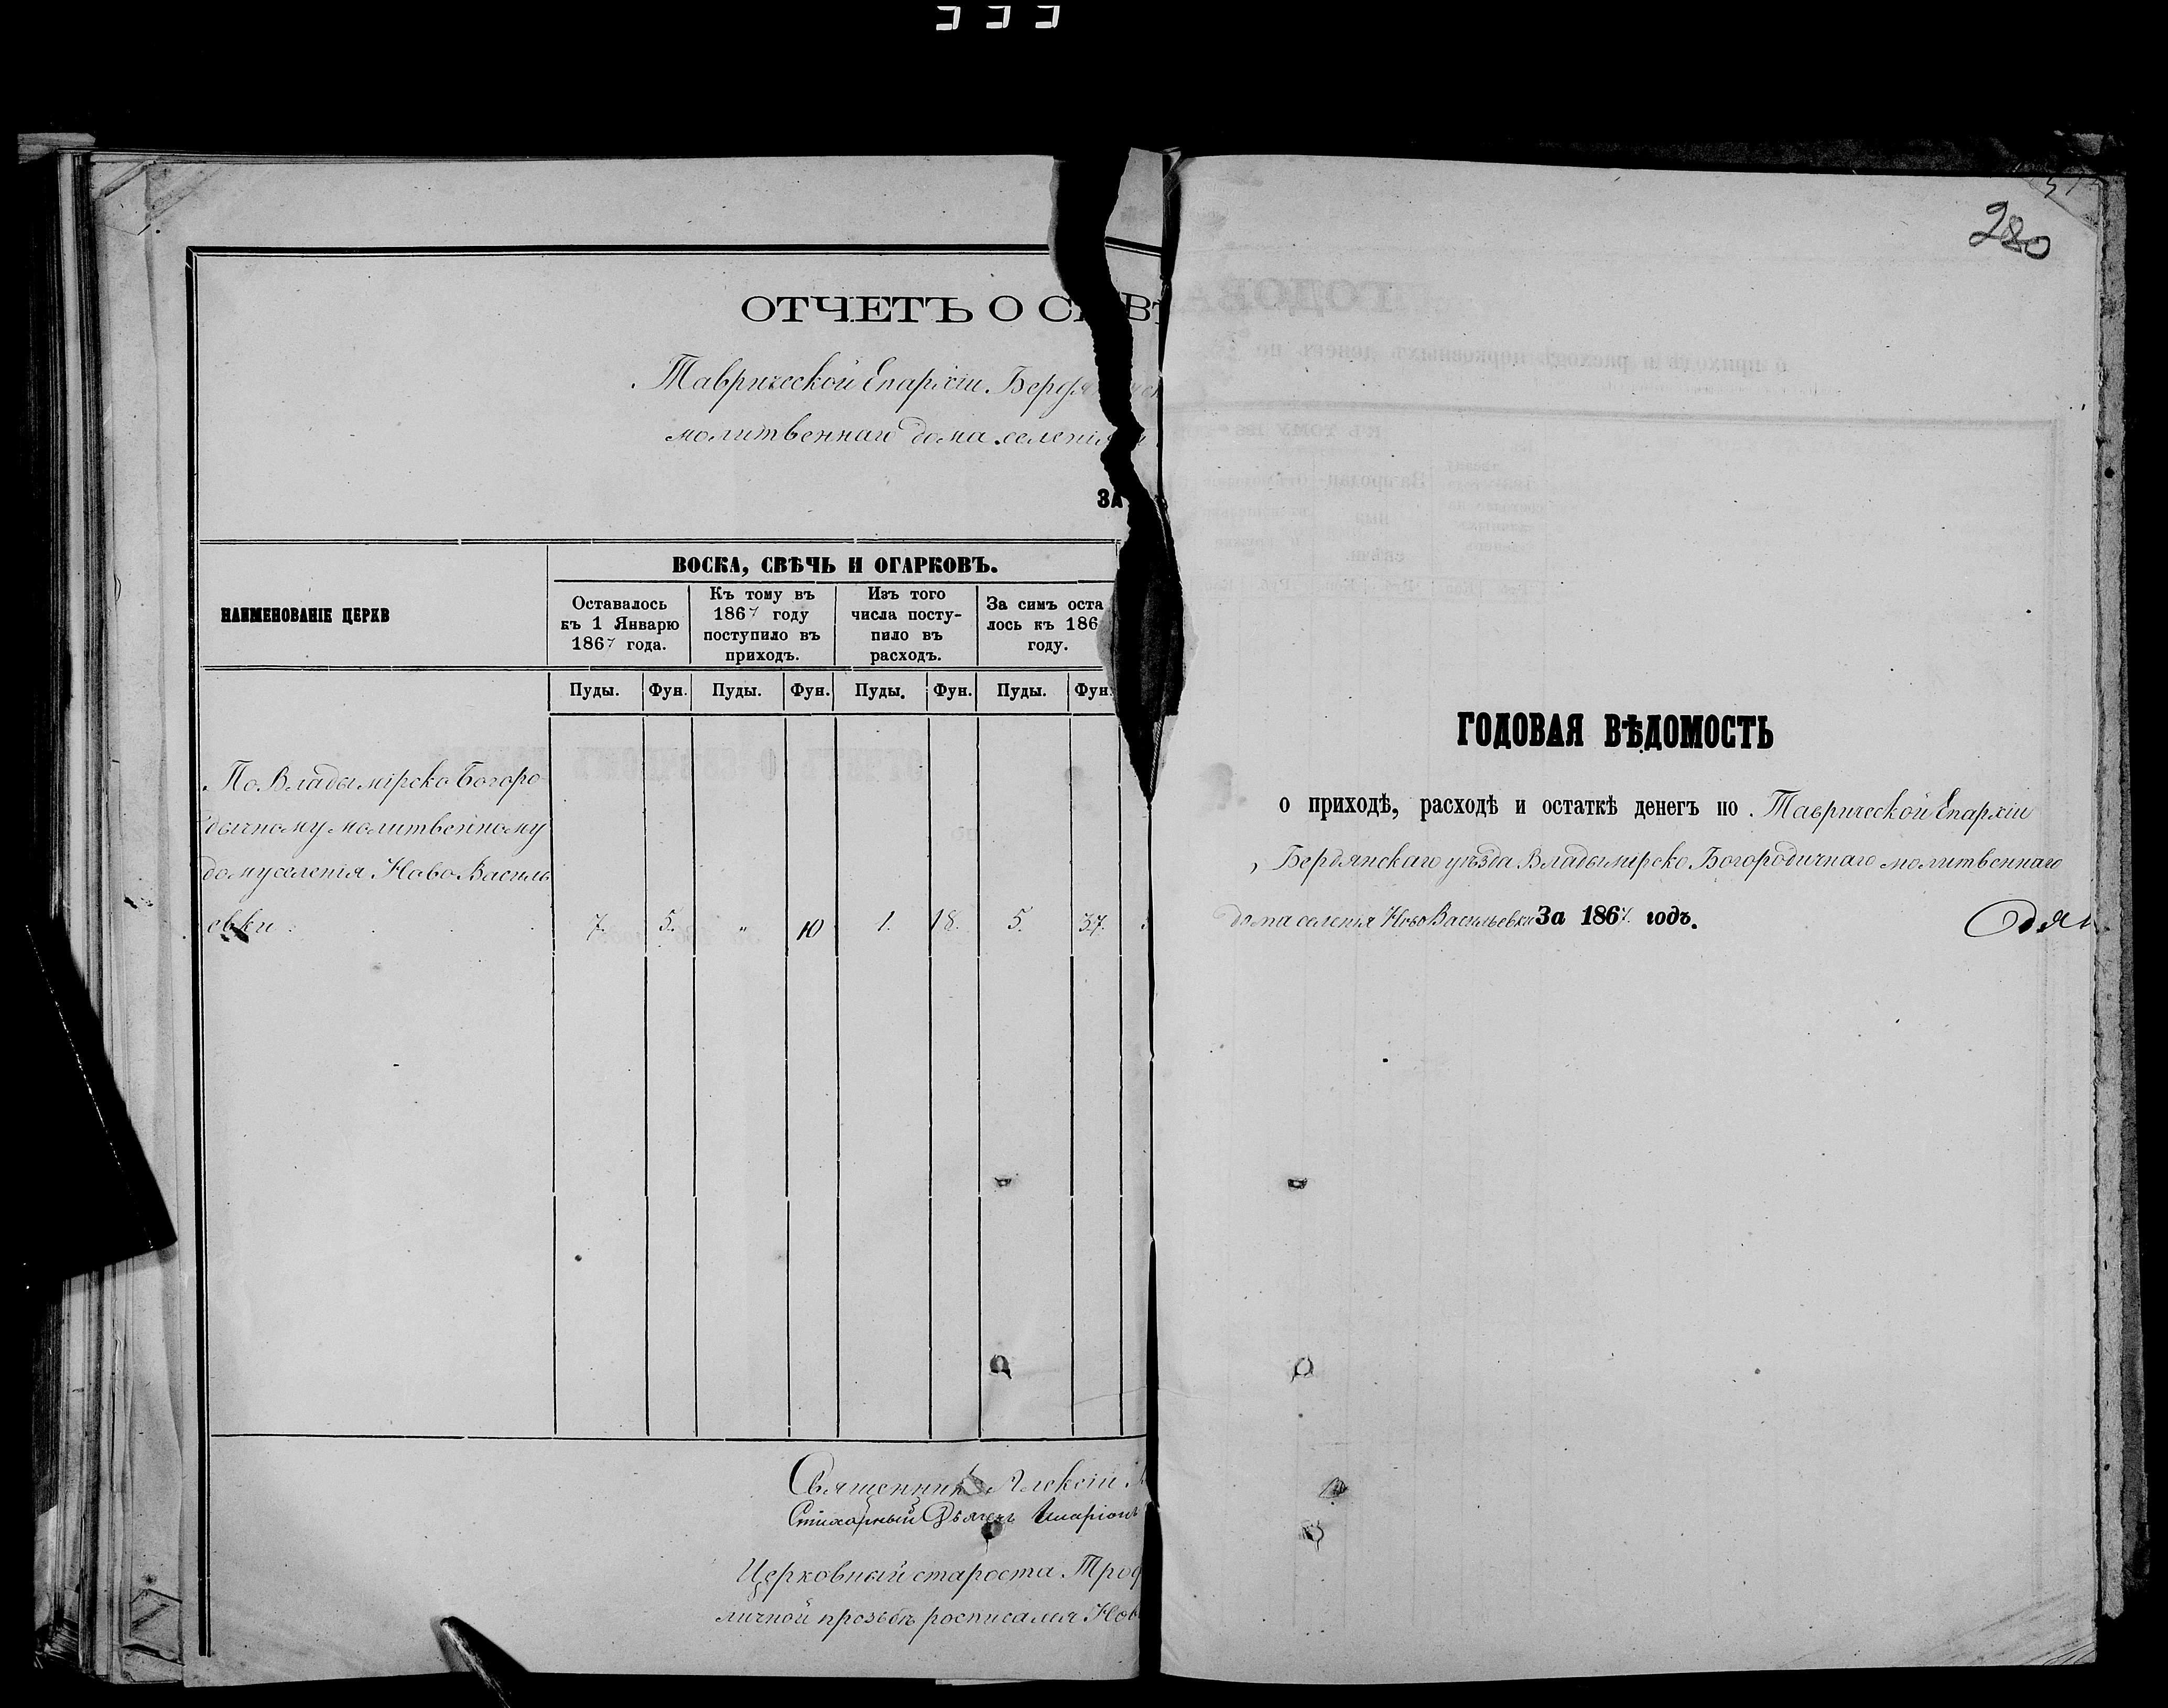 ОТЧЕТЪ О
Таврической Епархіи
молитвеннаго дома селенія
ЗА
НАИМЕНОВАНІЕ ЦЕРКВ
ВОСКА, СВѢЧЬ И ОГАРКОВЪ.
Оставалось
къ 1 Январю
1867 года.
Къ тому въ
1867 году
поступило въ
приходъ.
Изъ того
числа посту-
пило въ
расходъ.
За симъ оста
лось къ 186
году.
Пуды. Фун. Пуды. Фун. Пуды. Фун. Пуды. Фун.
По Владымірско Богоро-
дичному молитвенному
дому селенія Ново Василь
евки 7. 5. „ 10 1. 18. 5. 37.
Священникъ Алексій
Стихарный Дьячекъ
Церковный староста
личной прозьбѣ росписался
280
ГОДОВАЯ ВѢДОМОСТЬ
о приходѣ, расходѣ и остаткѣ денегъ по Таврической Епархіи
Бердянскаго уѣзда Владымірско Богородичнаго молитвеннаго
дома селенія Ново Васильевки За 1867. годъ.